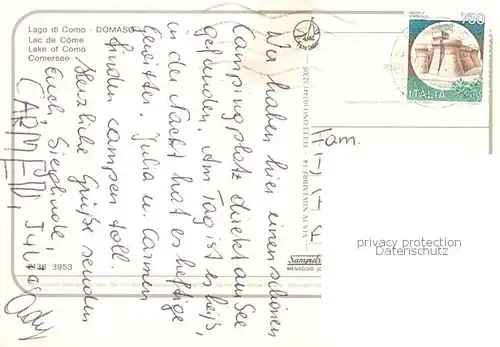 Lago di Como - DOMASO
Lac de Côme
Lake of Como
Comersee
750
ITALIA
Wir haben hier einen schönen
Campingplatz direkt am See
gefunden. Am Tag ist es heiß,
in der Nacht hat es heftige
Gewitter. Julia u. Carmen
finden campen toll.
Herzliche Grüße senden
Euch, Sieglinde,
CARMEN, Julia
Fam.
VIA AL NOVEMBRE 14
TELEFONO (0344)
MENAGGIO
3953
privacy protection
Datenschutz